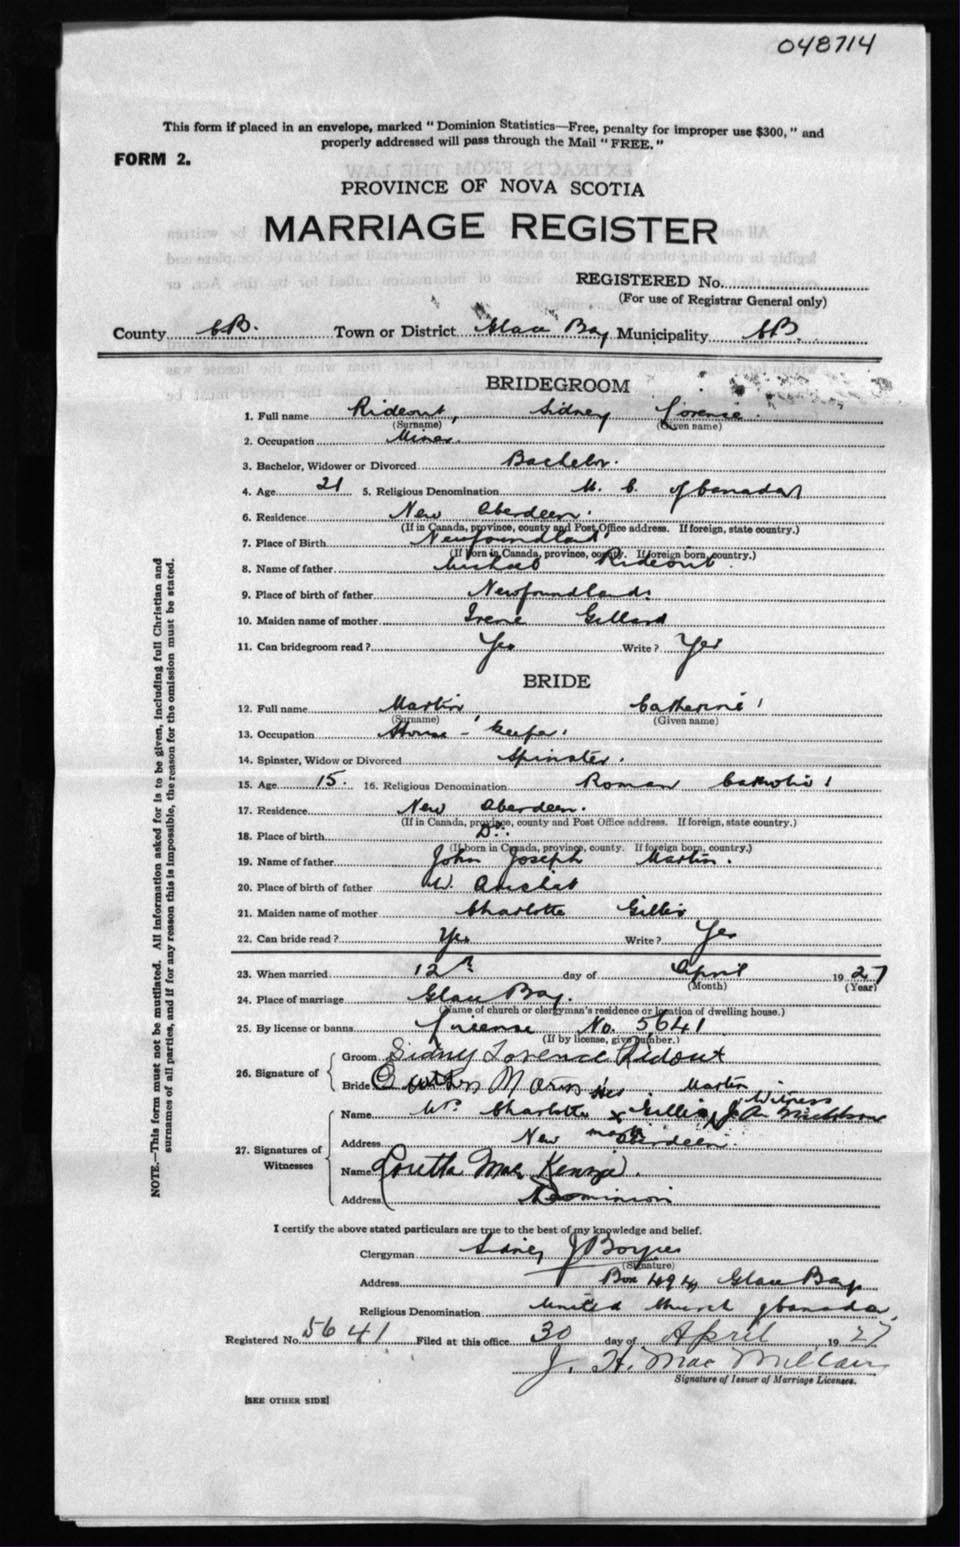 048714
This form if placed in an envelope, marked "Dominion Statistics—Free, penalty for improper use $300," and
properly addressed will pass through the Mail "FREE."
FORM 2.
EXTRACTS FROM THE LAW
PROVINCE OF NOVA SCOTIA
MARRIAGE REGISTER
REGISTERED No.
(For use of Registrar General only)
County C.B. Town or District Glace Bay Municipality C.B.
BRIDEGROOM
1. Full name Rideout, Sidney Lorence
(Surname) (Given name)
2. Occupation Miner.
3. Bachelor, Widower or Divorced Bachelor.
4. Age 21 5. Religious Denomination U. C. of Canada
6. Residence New Aberdeen.
(If in Canada, province, county and Post Office address. If foreign, state country.)
7. Place of Birth Newfoundland
(If born in Canada, province, county. If foreign born, country.)
8. Name of father Michael Rideout.
9. Place of birth of father Newfoundland.
10. Maiden name of mother Irene Gillard
11. Can bridegroom read? Yes Write? Yes
BRIDE
12. Full name Martin, Catherine
(Surname) (Given name)
13. Occupation House-Keeper
14. Spinster, Widow or Divorced Spinster.
15. Age 15. 16. Religious Denomination Roman Catholic
17. Residence New Aberdeen.
(If in Canada, province, county and Post Office address. If foreign, state country.)
18. Place of birth Do.
(If born in Canada, province, county. If foreign born, country.)
19. Name of father John Joseph Martin.
20. Place of birth of father W. Arichat
21. Maiden name of mother Charlotte Gillis
22. Can bride read? Yes Write? Yes
23. When married 12th day of April 1927
(Month) (Year)
24. Place of marriage Glace Bay.
(Name of church or clergyman's residence or location of dwelling house.)
25. By license or banns License No. 5641
(If by license, give number.)
26. Signature of Groom Sidney Lorence Ridout
Bride Martin
her
Witness
27. Signatures of Witnesses
Name Charlotte x Gillis
mark
Address New Aberdeen.
Name Loretta MacKenzie.
Address Dominion
I certify the above stated particulars are true to the best of my knowledge and belief.
Clergyman Sidney J Boyce
(Signature)
Address Box 494 Glace Bay
Religious Denomination United Church of Canada
Registered No. 5641 Filed at this office 30 day of April 1927
J. H. MacMillan
Signature of Issuer of Marriage Licenses.
[SEE OTHER SIDE]
NOTE.—This form must not be mutilated. All information asked for is to be given, including full Christian and
surnames of all parties, and if for any reason this is impossible, the reason for the omission must be stated.